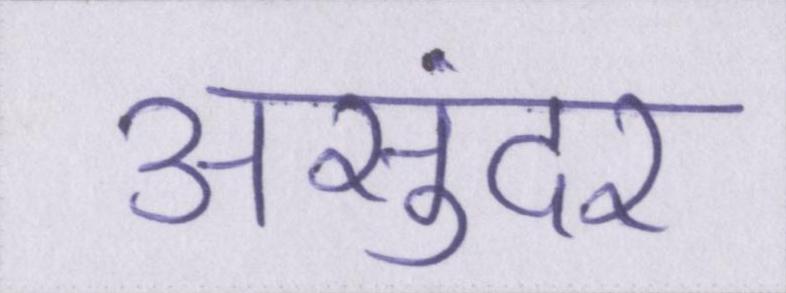 असुंदर